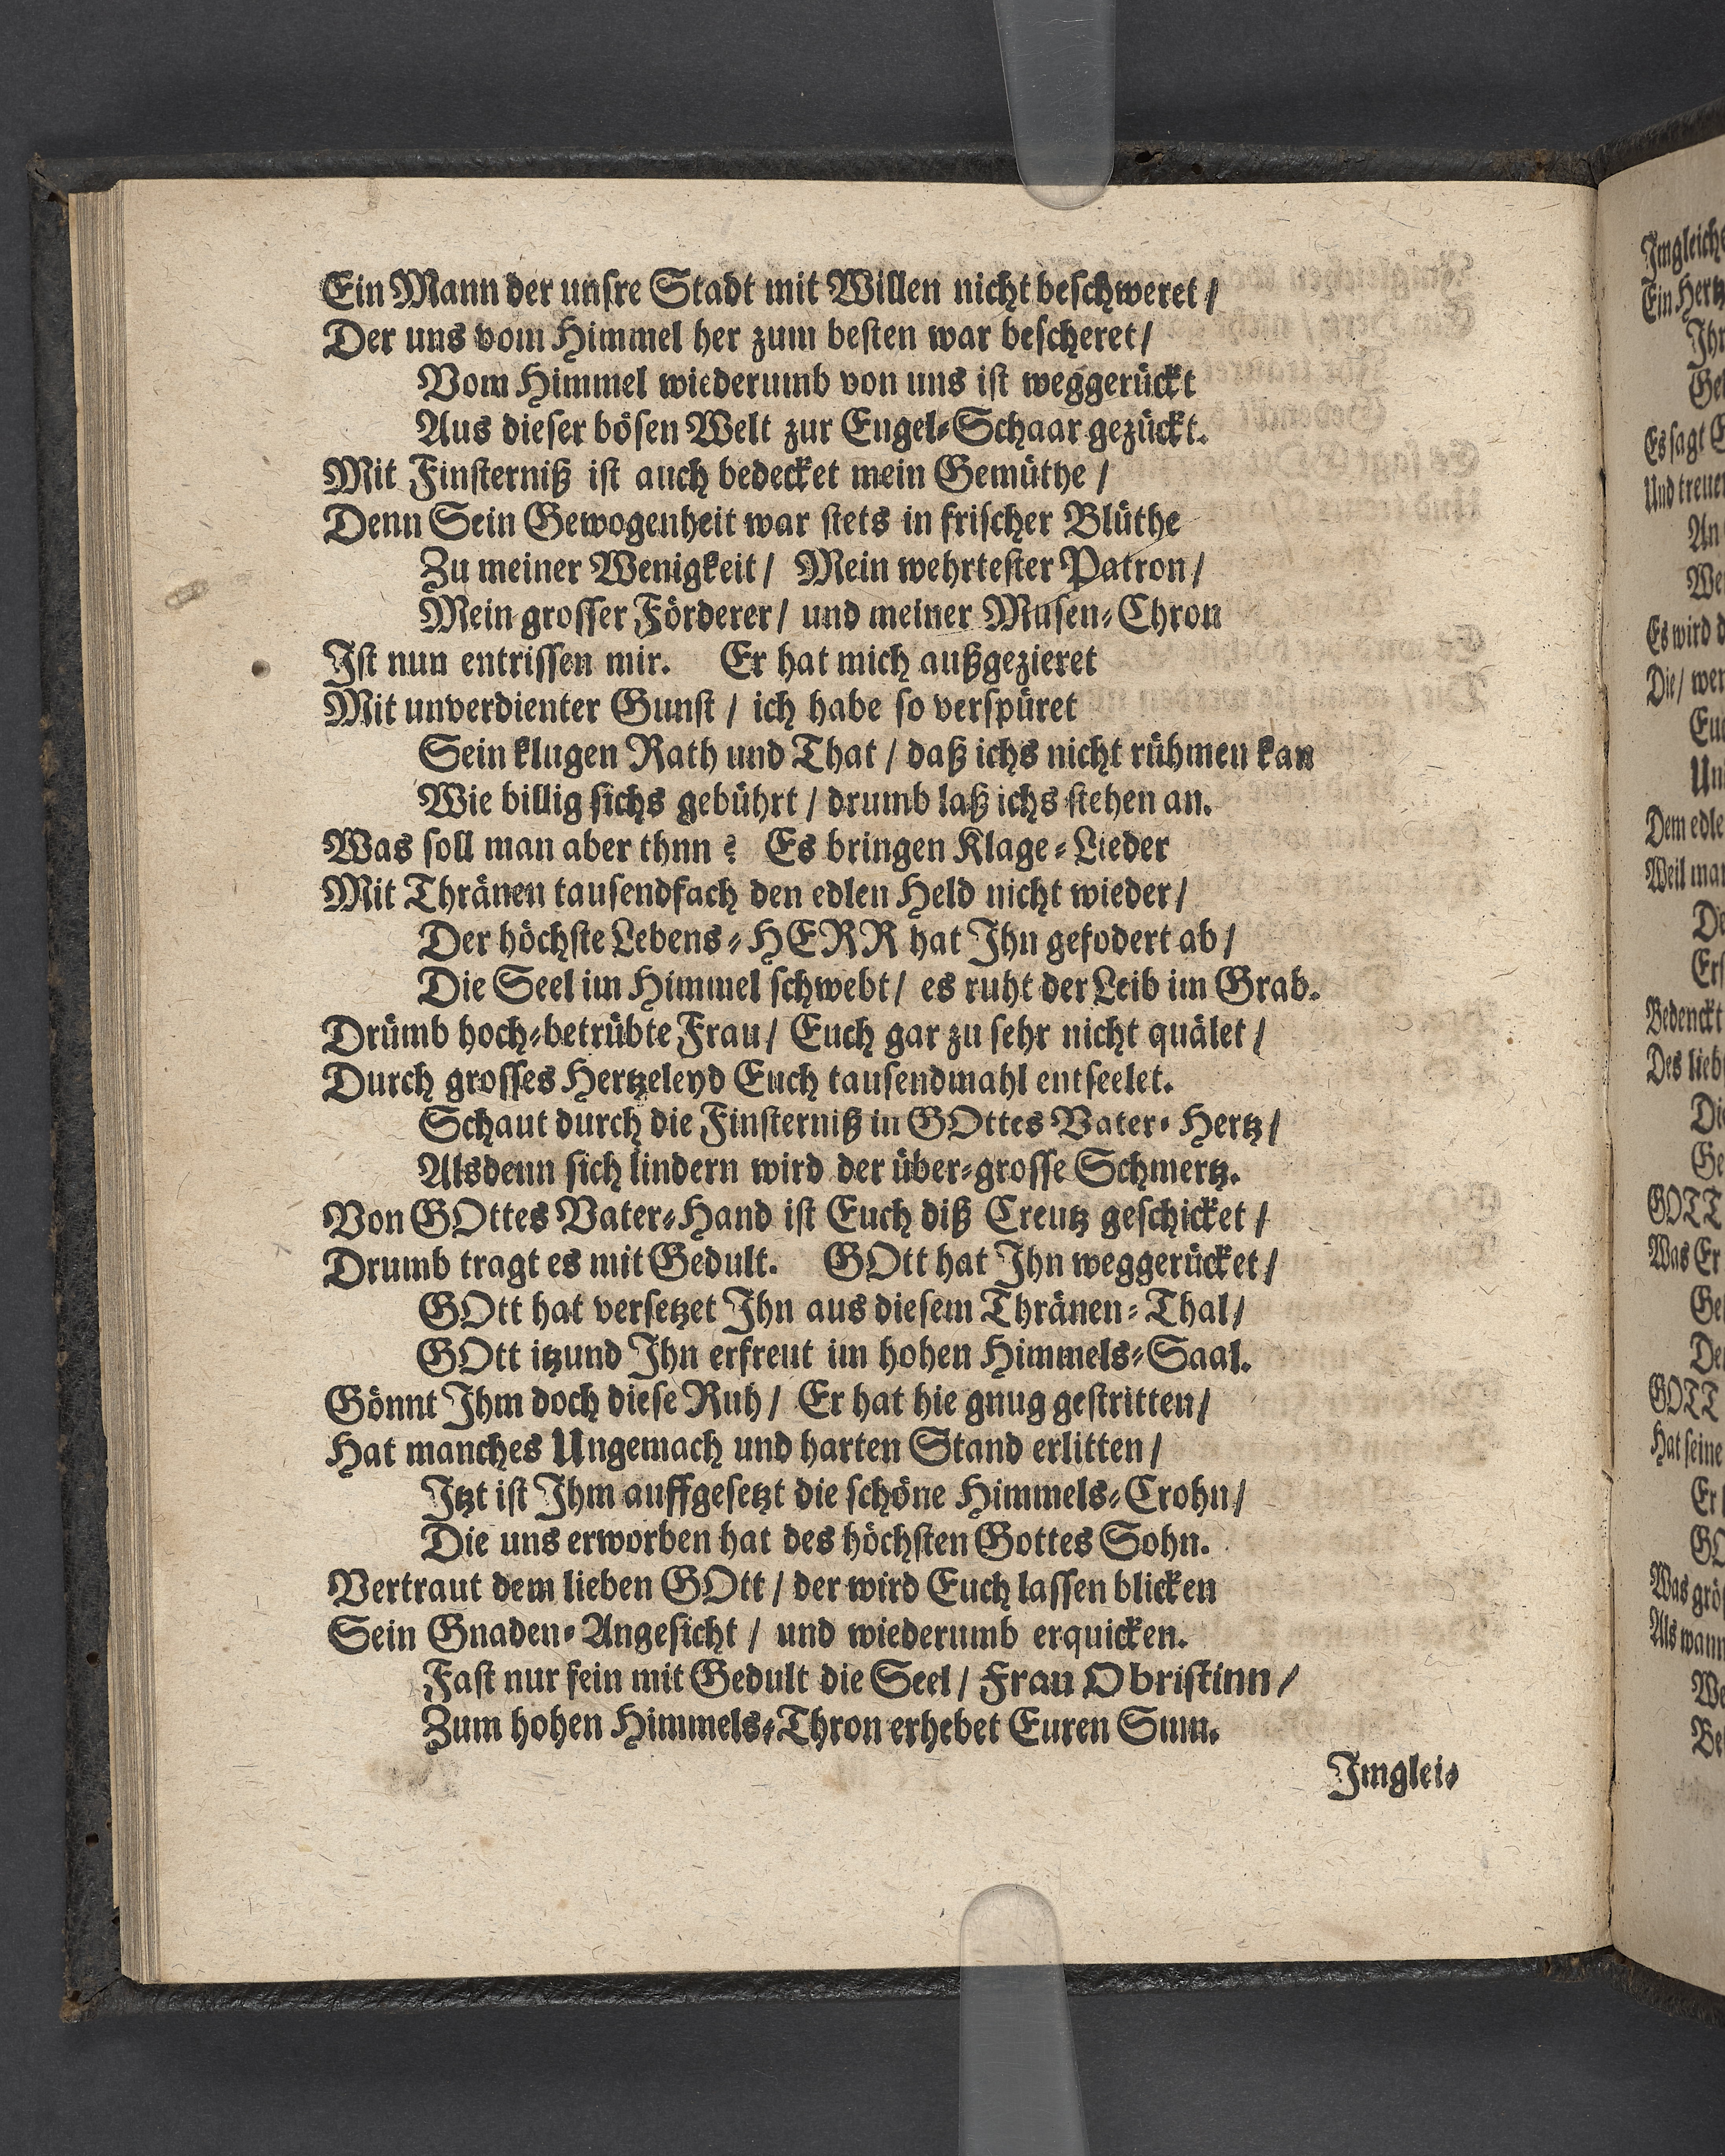 Ein Mann der unſre Stadt mit Willen nicht beſchweret /
Der uns vom Himmel her zum beſten war beſcheret /
Vom Himmel wiederumb von uns iſt weggerückt
Aus dieſer böſen Welt zur Engel-Schaar gezückt.
Mit Finſterniß iſt auch bedecket mein Gemüthe /
Denn Sein Gewogenheit war ſtets in friſcher Blüthe
Zu meiner Wenigkeit / Mein wehrteſter Patron /
Mein groſſer Förderer / und meiner Muſen-Chron
Iſt nun entriſſen mir. Er hat mich außgezieret
Mit unverdienter Gunſt / ich habe ſo verſpüret
Sein klugen Rath und That / daß ichs nicht rühmen kan
Wie billig ſichs gebührt / drumb laß ichs ſtehen an.
Was ſoll man aber thnn ? Es bringen Klage-Lieder
Mit Thränen tauſendfach den edlen Held nicht wieder /
Der höchſte Lebens-HERR hat Ihn gefodert ab /
Die Seel im Himmel ſchwebt / es ruht der Leib im Grab.
Drümb hoch-betrübte Frau / Euch gar zu ſehr nicht quälet /
Durch groſſes Hertzeleyd Euch tauſendmahl entſeelet.
Schaut durch die Finſterniß in GOttes Vater-Hertz /
Alsdenn ſich lindern wird der über-groſſe Schmertz.
Von GOttes Vater-Hand iſt Euch diß Creutz geſchicket /
Drumb tragt es mit Gedult. GOtt hat Ihn weggerücket /
GOtt hat verſetzet Ihn aus dieſem Thränen-Thal /
GOtt itzund Ihn erfreut im hohen Himmels-Saal.
Gönnt Ihm doch dieſe Ruh / Er hat hie gnug geſtritten /
Hat manches Ungemach und harten Stand erlitten /
Itzt iſt Ihm auffgeſetzt die ſchöne Himmels-Crohn /
Die uns erworben hat des höchſten Gottes Sohn.
Vertraut dem lieben GOtt / der wird Euch laſſen blicken
Sein Gnaden-Angeſicht / und wiederumb erquicken.
Faſt nur fein mit Gedult die Seel / Frau Obriſtinn /
Zum hohen Himmels-Thron erhebet Euren Sinn.
Imglei-